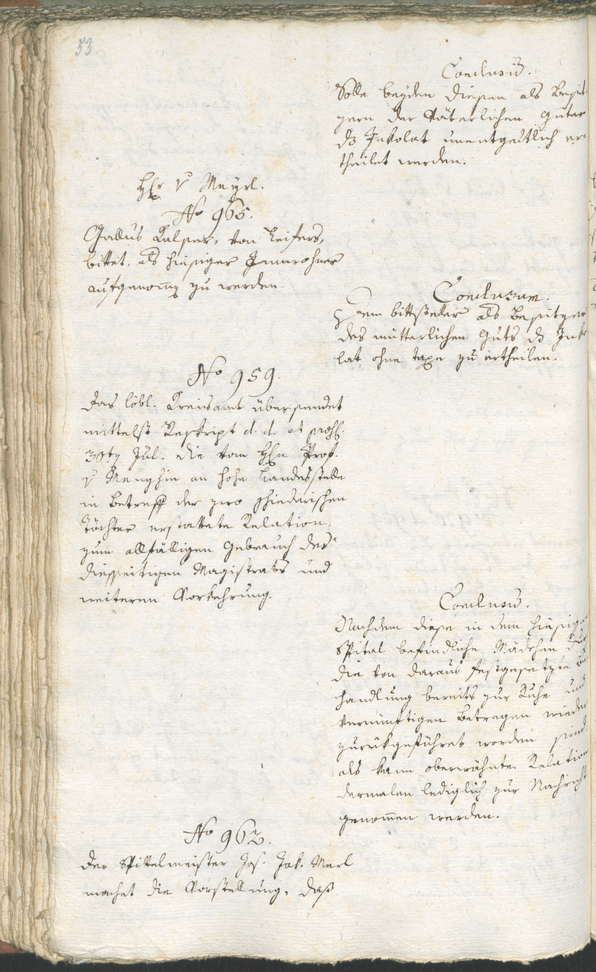 53
Conclusū.
Solle beyden diesen als Besit-
zern der Väterlichen Güter
ds Inkolat unentgeltlich er-
theilet werden.
Hr. v Mayrl.
No 965.
Gallus Kalser, von Leifers,
bittet, als hiesiger Innwohner
aufgenom̄ zu werden.
Conclusum.
Dem bittsteler als Besitzer
des mütterlichen Guts ds Inko-
lat ohne taxe zu ertheilen.
No 959.
Das löbl. Kreisamt übersendet
mittelst Reskript d. d. et
30ty Jul. die vom Hln Prof.
v Menghin an hohe Landesstelle
in Betreff der
töchter erstattete Relation
zum allfälligen Gebrauch des
diesseitigen Magistrats und
weiteren Vorkehrung.
Conclusū.
Nachdem diese in dem hiesigen
Spital befindliche Mädchen durch
die von daraus festgesetzte Be-
handlung bereits zur Ruhe und
vernünftigen Betragen wieder
zurückgeführet worden sind
als kann oberwähnte Relation
dermalen lediglich zur Nachricht
genom̄en werden.
No 962.
Der Spittelmeister Jos. Jak. Merl
machet die Vorstellung, daß